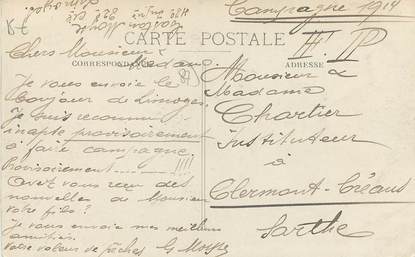 Campagne 1914
CARTE POSTALE
CORRESPONDANCE
ADRESSE
Chers Monsieur &
Madame.
Je vous envoie le
bonjour de Limoges.
Je suis reconnu
inapte provisoirement
à faire campagne
Provisoirement !!!!
Avez vous reçu des
nouvelles de Monsieur
votre fils?
Je vous envoie mes meilleures
amitiés.
Votre voleur de pêches G
Monsieur &
Madame
Chartier
instituteur
à
Clermont-Créans
Sarthe